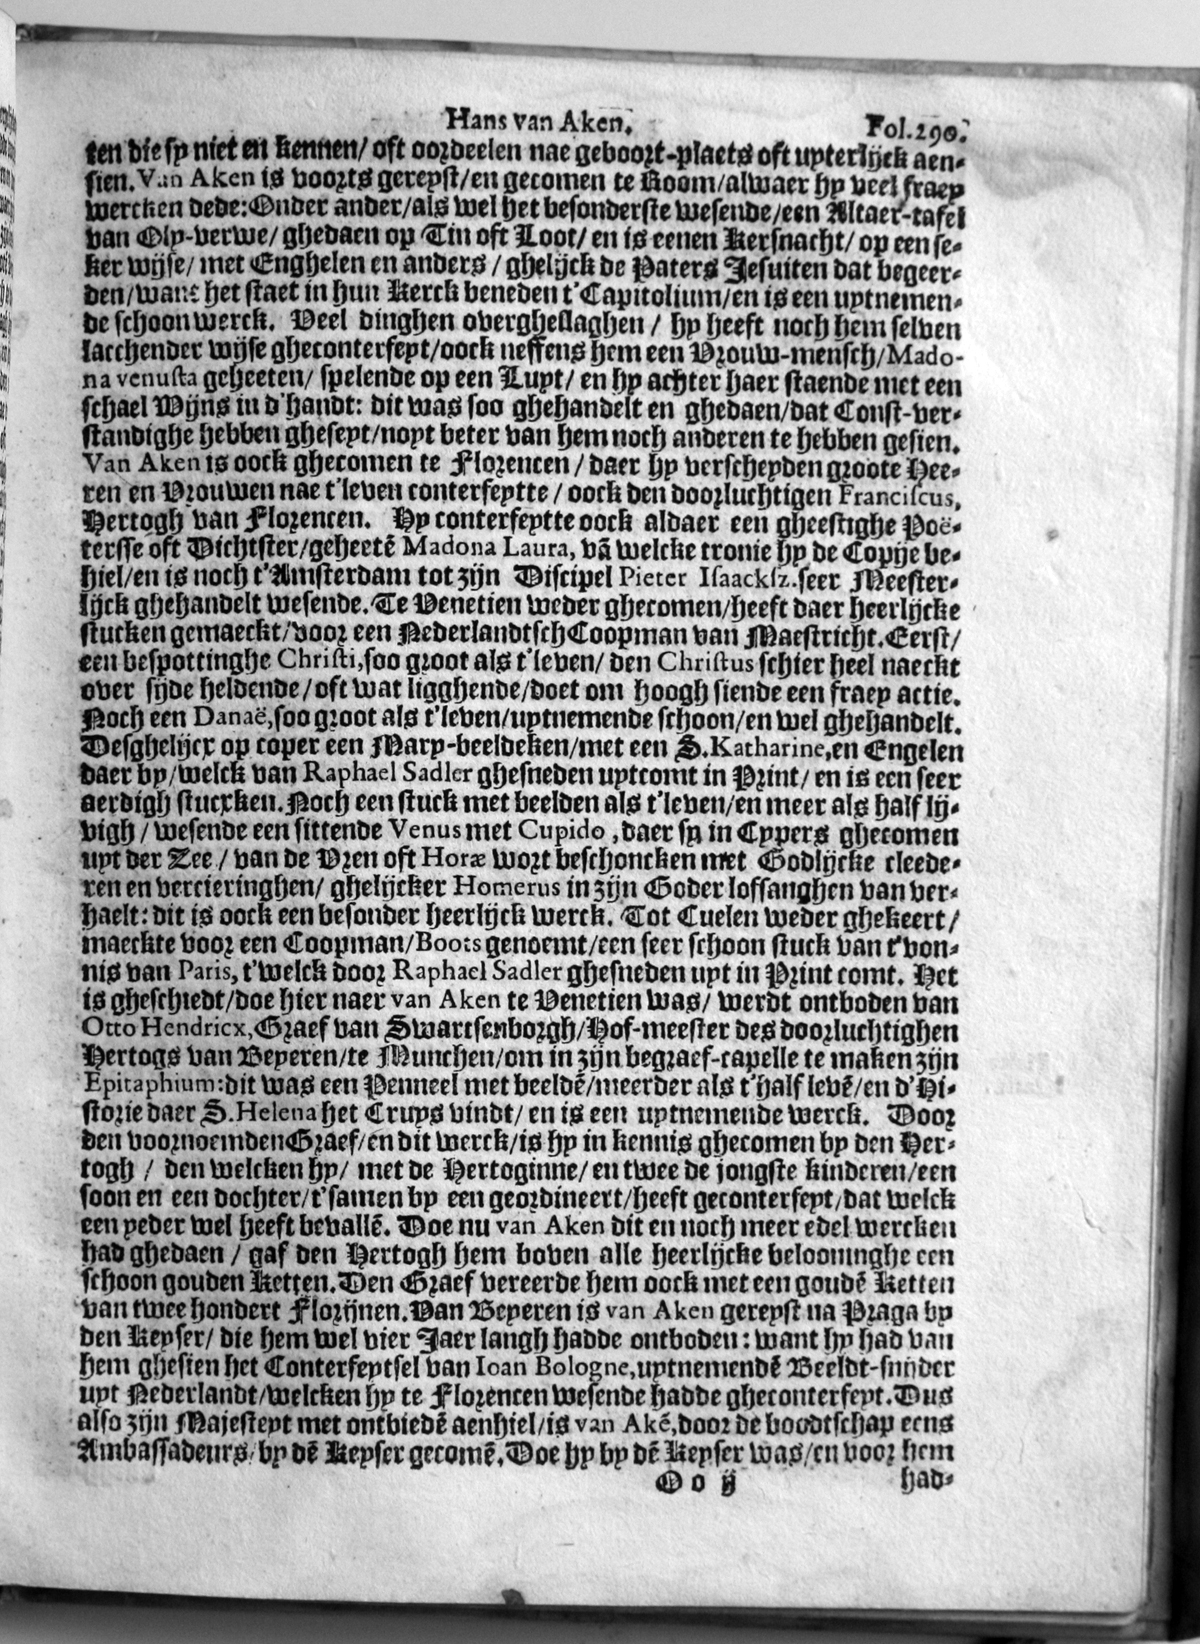 Hans van Aken. Fol. 290.
ten die sy niet en kennen/ oft oordeelen nae geboort-plaets oft uyterlijck aen-
sien. Van Aken is voorts gereyst/ en gecomen te Room/ alwaer hy veel fraey
wercken dede: Onder ander/ als wel het besonderste wesende/ een Altaer-tafel
van Oly-verwe/ ghedaen op Tin oft Loot/ en is eenen Kersnacht/ op een se-
ker wijse/ met Enghelen en anders/ ghelijck de Paters Jesuiten dat begeer-
den/ want het staet in hun Kerck beneden t'Capitolium/ en is een uytnemen-
de schoon werck. Veel dinghen overgheslaghen/ hy heeft noch hem selven
lacchender wijse gheconterfeyt/ oock neffens hem een Vrouw-mensch/ Mado-
na venusta geheeten/ spelende op een Luyt/ en hy achter haer staende met een
schael Wijns in d'handt: dit was soo ghehandelt en ghedaen/ dat Const-ver-
standighe hebben gheseyt/ noyt beter van hem noch anderen te hebben gesien.
Van Aken is oock ghecomen te Florencen/ daer hy verscheyden groote Hee-
ren en Vrouwen nae t'leven conterfeytte/ oock den doorluchtigen Franciscus,
Hertogh van Florencen. Hy conterfeytte oock aldaer een gheestighe Poë-
tersse oft Dichtster/ geheetē Madona Laura, vā welcke tronie hy de Copije be-
hiel/ en is noch t'Amsterdam tot zijn Discipel Pieter Isaacksz. seer Meester-
lijck ghehandelt wesende. Te Venetien weder ghecomen/ heeft daer heerlijcke
stucken gemaeckt/ voor een Nederlandtsch Coopman van Maestricht. Eerst/
een bespottinghe Christi, soo groot als t'leven/ den Christus schier heel naeckt
over sijde heldende/ oft wat ligghende/ doet om hoogh siende een fraey actie.
Noch een Danaë, soo groot als t'leven/ uytnemende schoon/ en wel ghehandelt.
Desghelijcx op coper een Mary-beeldeken/ met een S. Katharine, en Engelen
daer by/ welck van Raphael Sadler ghesneden uytcomt in Print/ en is een seer
aerdigh stucxken. Noch een stuck met beelden als t'leven/ en meer als half lij-
vigh/ wesende een sittende Venus met Cupido, daer sy in Cypers ghecomen
uyt der Zee/ van de Vren oft Horæ wort beschoncken met Godlijcke cleede-
ren en vercieringhen/ ghelijcker Homerus in zijn Goder lofsanghen van ver-
haelt: dit is oock een besonder heerlijck werck. Tot Cuelen weder ghekeert/
maeckte voor een Coopman/ Boots genoemt/ een seer schoon stuck van t'von-
nis van Paris, t'welck door Raphael Sadler ghesneden uyt in Print comt. Het
is gheschiedt/ doe hier naer van Aken te Venetien was/ werdt ontboden van
Otto Hendricx, Graef van Swartsenborgh/ Hof-meester des doorluchtighen
Hertogs van Beyeren/ te Munchen/ om in zijn begraef-capelle te maken zijn
Epitaphium: dit was een Penneel met beeldē/ meerder als t'half levē/ en d'Hi-
storie daer S. Helena het Cruys vindt/ en is een uytnemende werck. Door
den voornoemden Graef/ en dit werck/ is hy in kennis ghecomen by den Her-
togh/ den welcken hy/ met de Hertoginne/ en twee de jongste kinderen/ een
soon en een dochter/ t'samen by een geordineert/ heeft geconterfeyt/ dat welck
een yeder wel heeft bevallē. Doe nu van Aken dit en noch meer edel wercken
had ghedaen/ gaf den Hertogh hem boven alle heerlijcke belooninghe een
schoon gouden Ketten. Den Graef vereerde hem oock met een goudē Ketten
van twee hondert Florijnen. Van Beyeren is van Aken gereyst na Praga by
den Keyser/ die hem wel vier Jaer langh hadde ontboden: want hy had van
hem ghesien het Conterfeytsel van Ioan Bologne, uytnemendē Beeldt-snijder
uyt Nederlandt/ welcken hy te Florencen wesende hadde gheconterfeyt. Dus
also zijn Majesteyt met ontbiedē aenhiel/ is van Akē, door de boodtschap eens
Ambassadeurs/ by dē Keyser gecomē. Doe hy by dē Keyser was/ en voor hem
O o ij had-